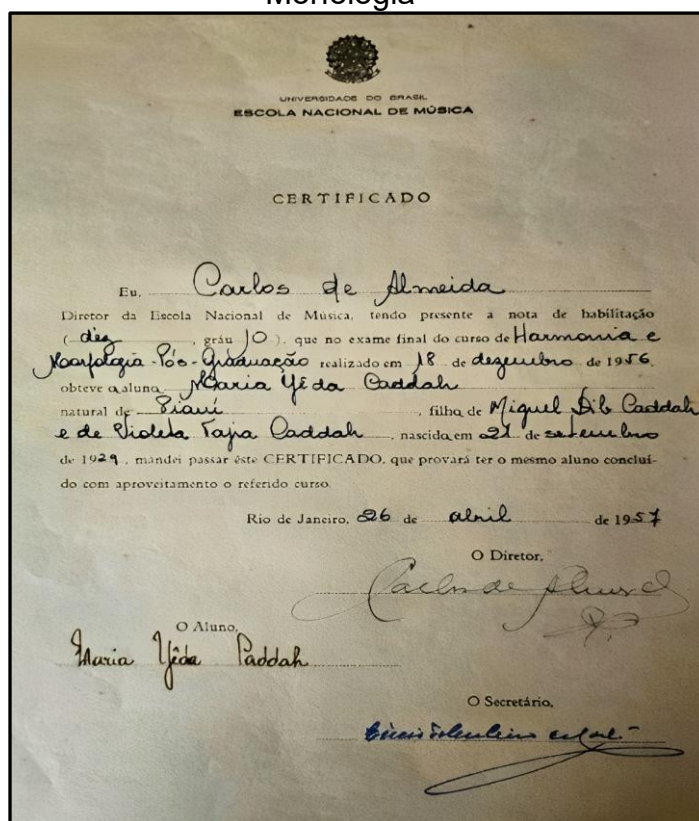 Morfologia
UNIVERSIDADE DO BRASIL
ESCOLA NACIONAL DE MÚSICA
CERTIFICADO
Eu, Carlos de Almeida
Diretor da Escola Nacional de Música, tendo presente a nota de habilitação
( dêz , gráu 10 ), que no exame final do curso de Harmonia e
Morfologia - Pós-Graduação realizado em 18 de dezembro de 1956,
obteve o aluno Maria Yêda Caddah
natural de Piauí , filha de Miguel Dib Caddah
e de Violeta Tajra Caddah , nascida em 21 de setembro
de 1929 , mandei passar êste CERTIFICADO, que provará ter o mesmo aluno concluí-
do com aproveitamento o referido curso.
Rio de Janeiro, 26 de abril de 1957
O Diretor,
Carlos de Almeida
O Aluno,
Maria Yêda Caddah
O Secretário,